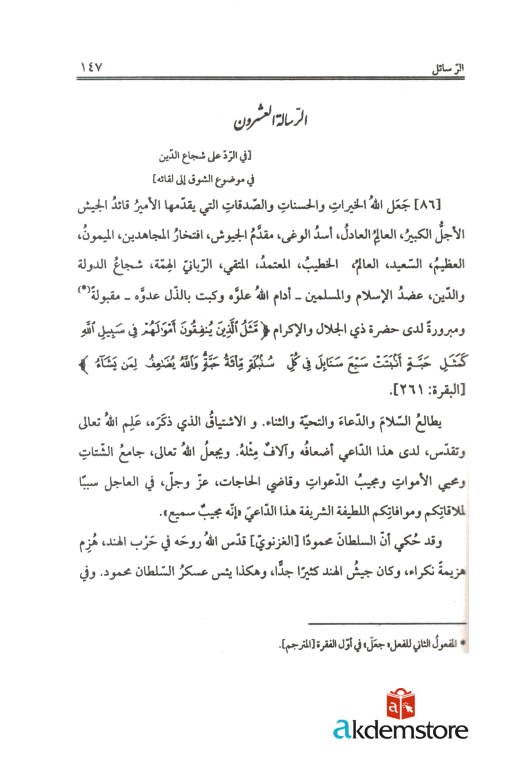 الرّسائل ١٤٧
الرّسالة العشرون
[في الردّ على شجاع الدّين
في موضوع الشوق إلى لقائه]
[٨٦] جَعَل اللهُ الخيراتِ والحسناتِ والصّدقاتِ التي يقدّمها الأميرُ قائدُ الجيش
الأجلُّ الكبيرُ، العالِمُ العادلُ، أسدُ الوغى، مقدَّمُ الجيوش، افتخارُ المجاهدين، الميمونُ،
العظيمُ، السّعيد، العالمُ، الخطيبُ، المعتمدُ، المتقي، الرّبانيّ الهِمّة، شجاعُ الدولة
والدّين، عضدُ الإسلام والمسلمين ـ أدام اللهُ علوَّه وكبت بالذّل عدوَّه ـ مقبولةً(*)
ومبرورةً لدى حضرة ذي الجلال والإكرام ﴿ مَّثَلُ ٱلَّذِينَ يُنفِقُونَ أَمْوَٰلَهُمْ فِى سَبِيلِ ٱللَّهِ
كَمَثَلِ حَبَّةٍ أَنۢبَتَتْ سَبْعَ سَنَابِلَ فِى كُلِّ سُنۢبُلَةٍ مِّا۟ئَةُ حَبَّةٍ وَٱللَّهُ يُضَٰعِفُ لِمَن يَشَآءُ ﴾
[البقرة: ٢٦١].
يطالعُ السّلامَ والدّعاءَ والتحيّة والثناء. و الاشتياقُ الذي ذكَرَه، عَلِم اللهُ تعالى
وتقدّس، لدى هذا الدّاعي أضعافُه وآلافٌ مِثلُه. ويجعلُ اللهُ تعالى، جامعُ الشّتاتِ
ومحيي الأمواتِ ومجيبُ الدّعواتِ وقاضي الحاجات، عزّ وجلّ، في العاجل سببًا
لملاقاتِكم وموافاتِكم اللطيفة الشريفة هذا الدّاعيَ «إنّه مجيبٌ سميع».
وقد حُكي أنّ السلطانَ محمودًا [الغزنويّ] قدّس اللهُ روحَه في حَرْب الهند، هُزِم
هزيمةً نكراء، وكان جيشُ الهند كثيرًا جدًّا، وهكذا يئس عسكرُ السّلطان محمود. وفي
* المفعولُ الثاني للفعل «جعَلَ» في أوّل الفقرة [المترجم].
a
akdemstore